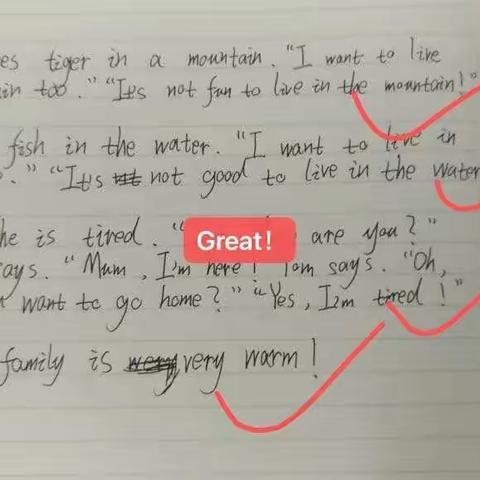 es tiger in a mountain. "I want to live
in too." "It's not fun to live in the mountain!"
fish in the water. "I want to live in
." "It's not good to live in the water
he is tired. " are you?"
ays. "Mum, I'm here! Tom says. "Oh,
want to go home?" "Yes, I'm tired!"
family is very warm!
Great!